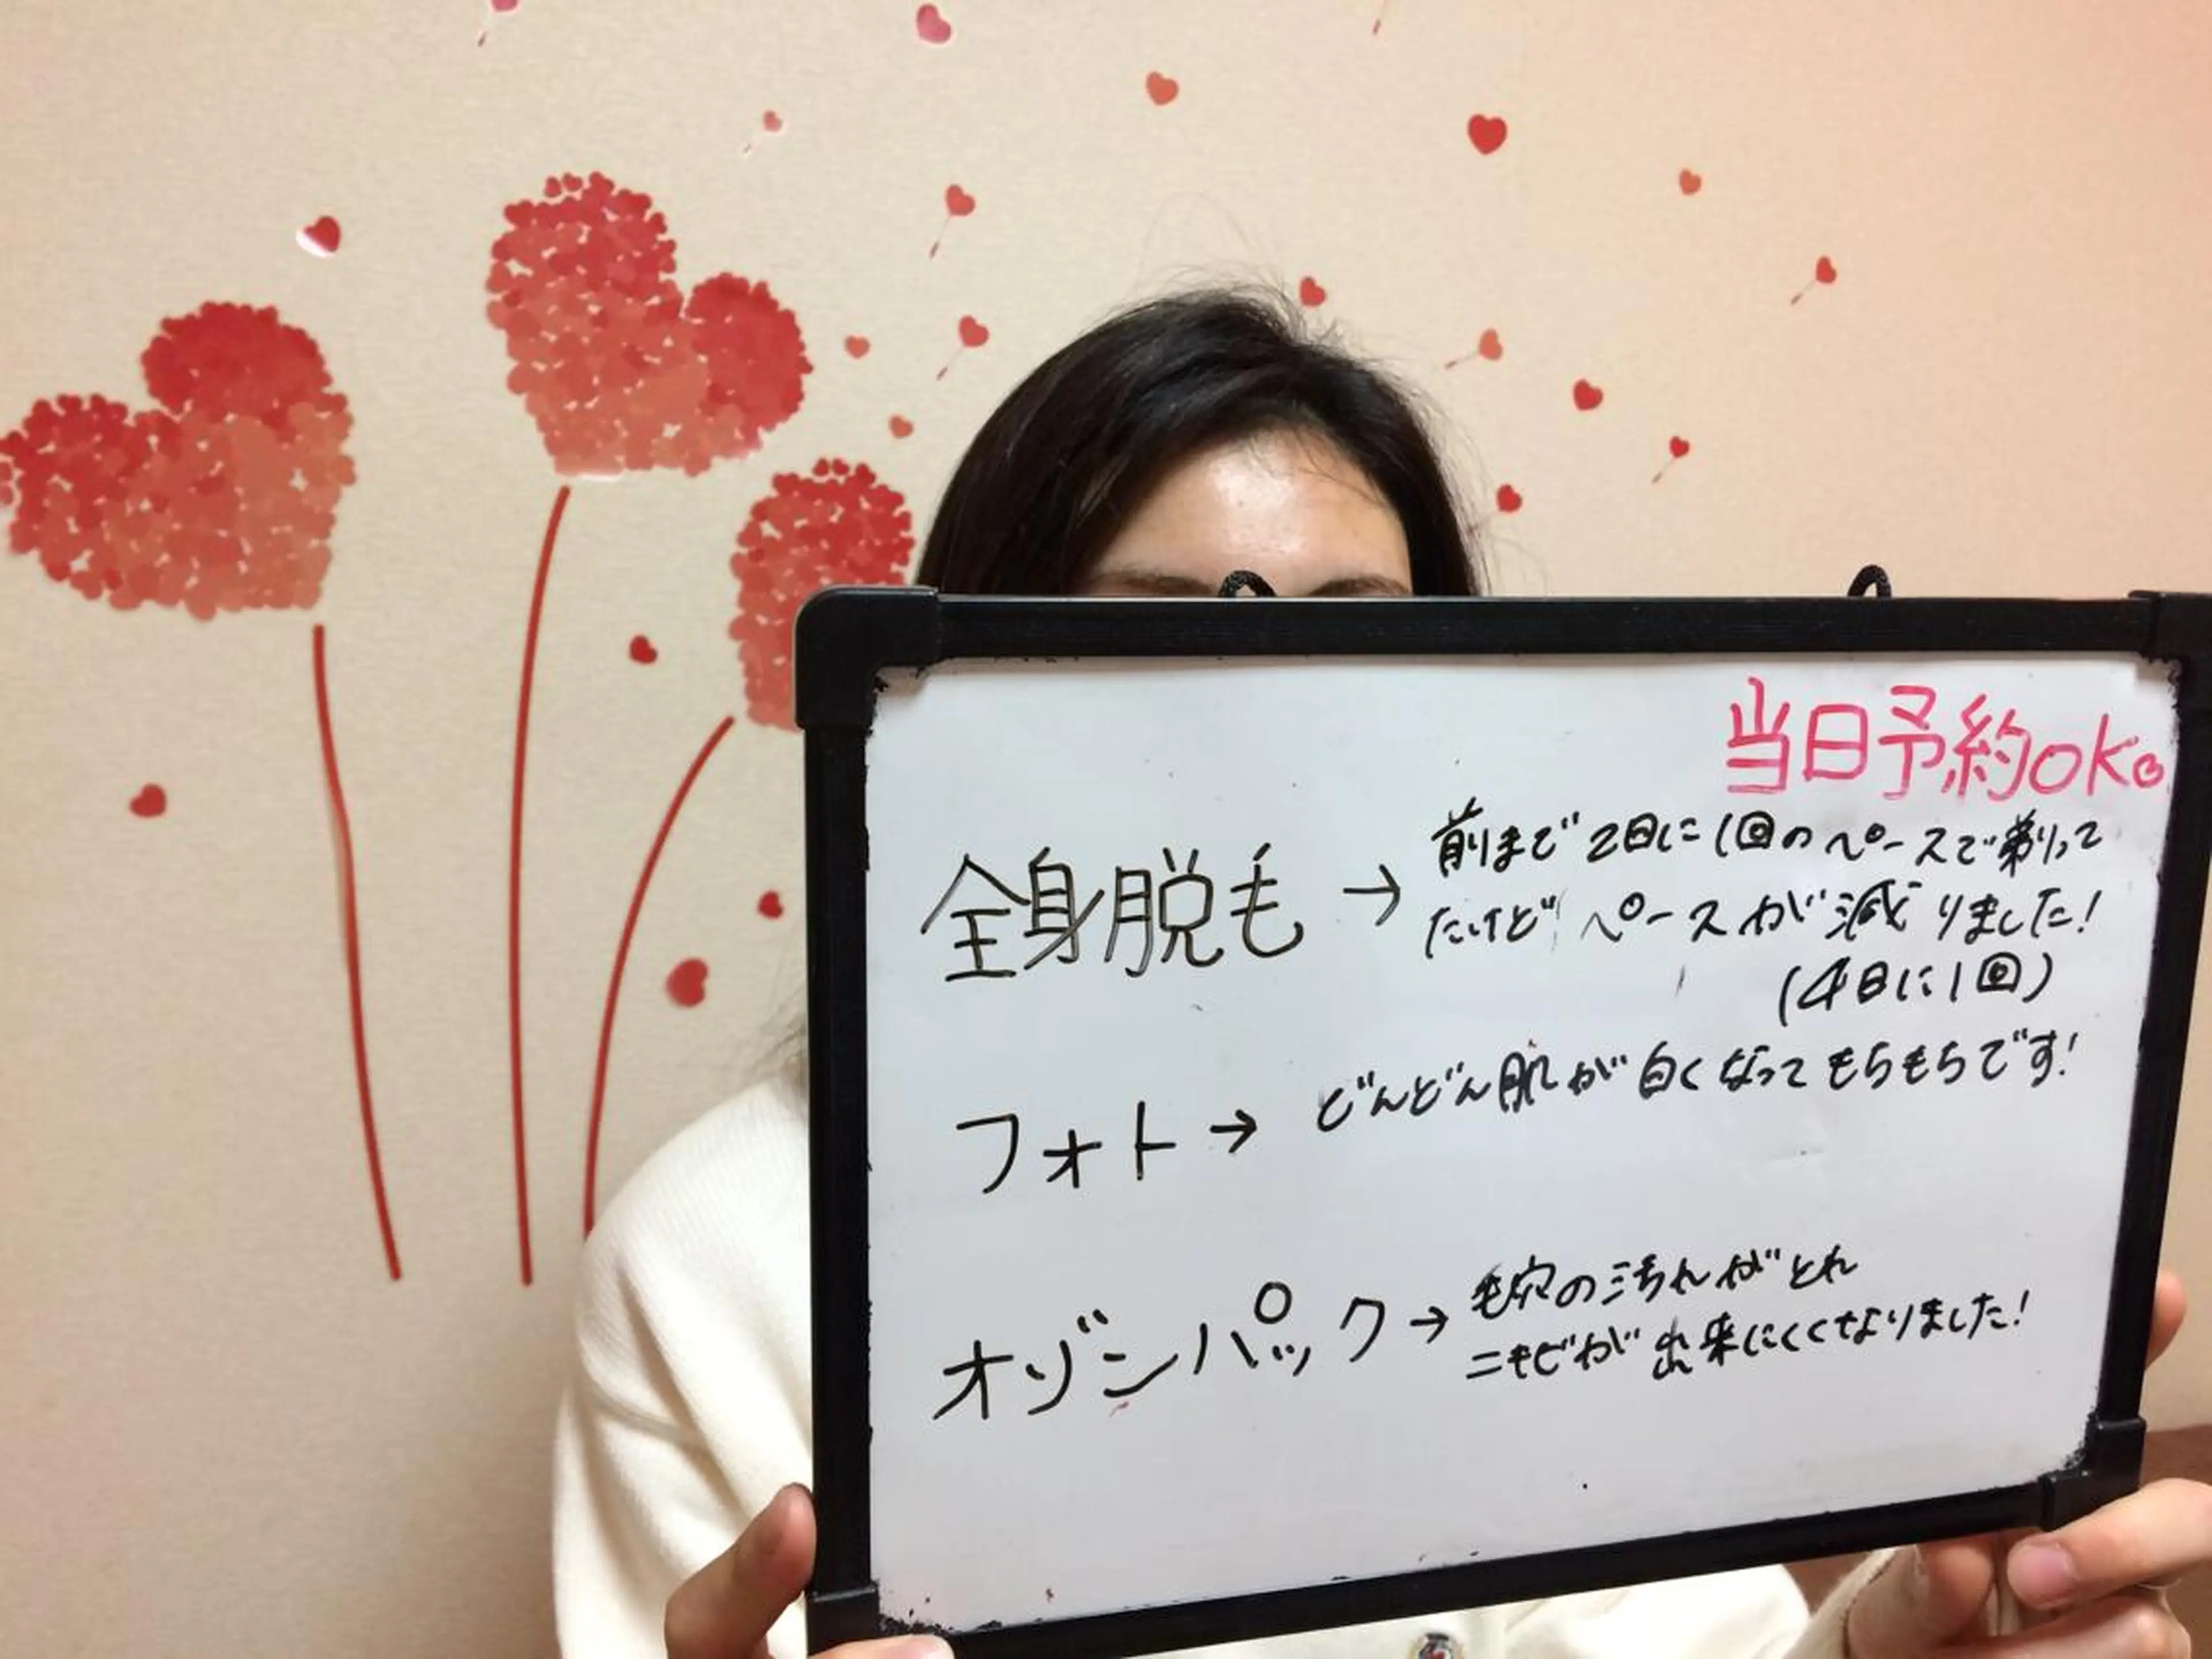 当日予約OK。
全身脱毛→前まで2日に1回のペースで剃って
たけどペースが減りました!
(4日に1回)
フォト→どんどん肌が白くなってもちもちです!
オゾンパック→毛穴の汚れがとれ
ニキビが出来にくくなりました!